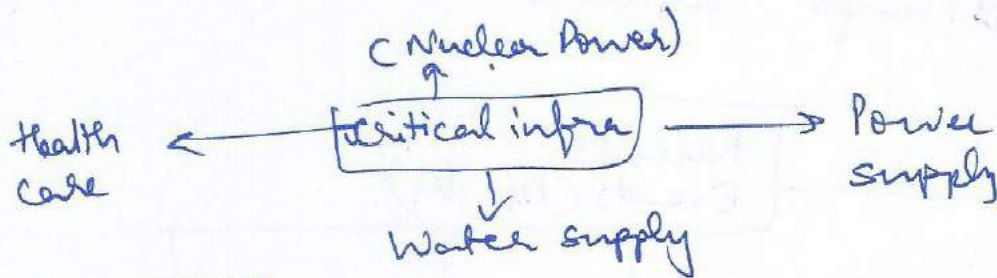 (Nuclear Power)
Health
care
Critical infra
Power
supply
Water supply